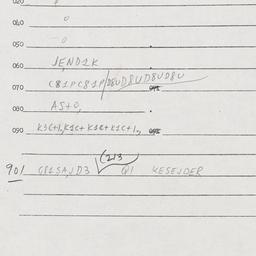 040 0
050 0
060 JEND1K
070 C81PC81P/D8UD8UD8UD8U
080 AS+0,
090 K3C+1,K1C+K1C+K1C+1,
901 C81SA,JD3 (213 Q1 4ESEJDER